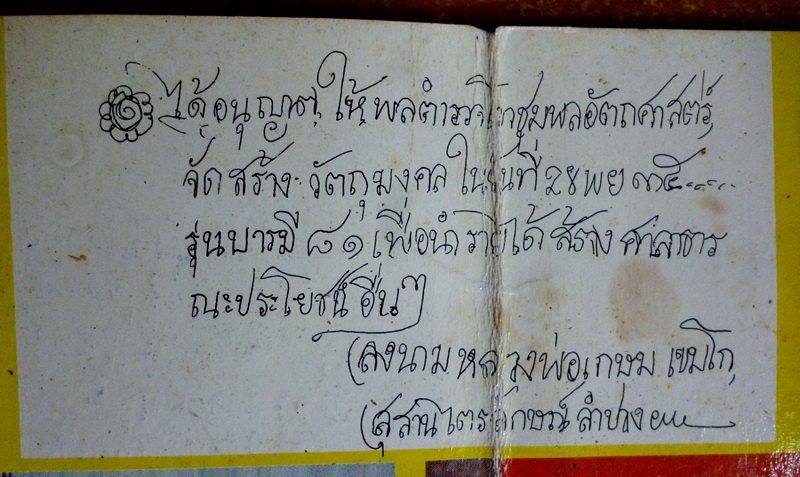 ได้อนุญาต ให้ พลตำรวจโท ชุมพล อัตถศาสตร์
จัดสร้าง วัตถุมงคล ในวันที่ 28 พย ๓๕
รุ่นบารมี ๘๑ เพื่อนำรายได้ สร้าง ศาลาธาร
ณะประโยชน์ อื่นๆ
(ลงนาม หลวงพ่อเกษม เขมโก
(สุสานไตรลักษณ์ ลำปาง